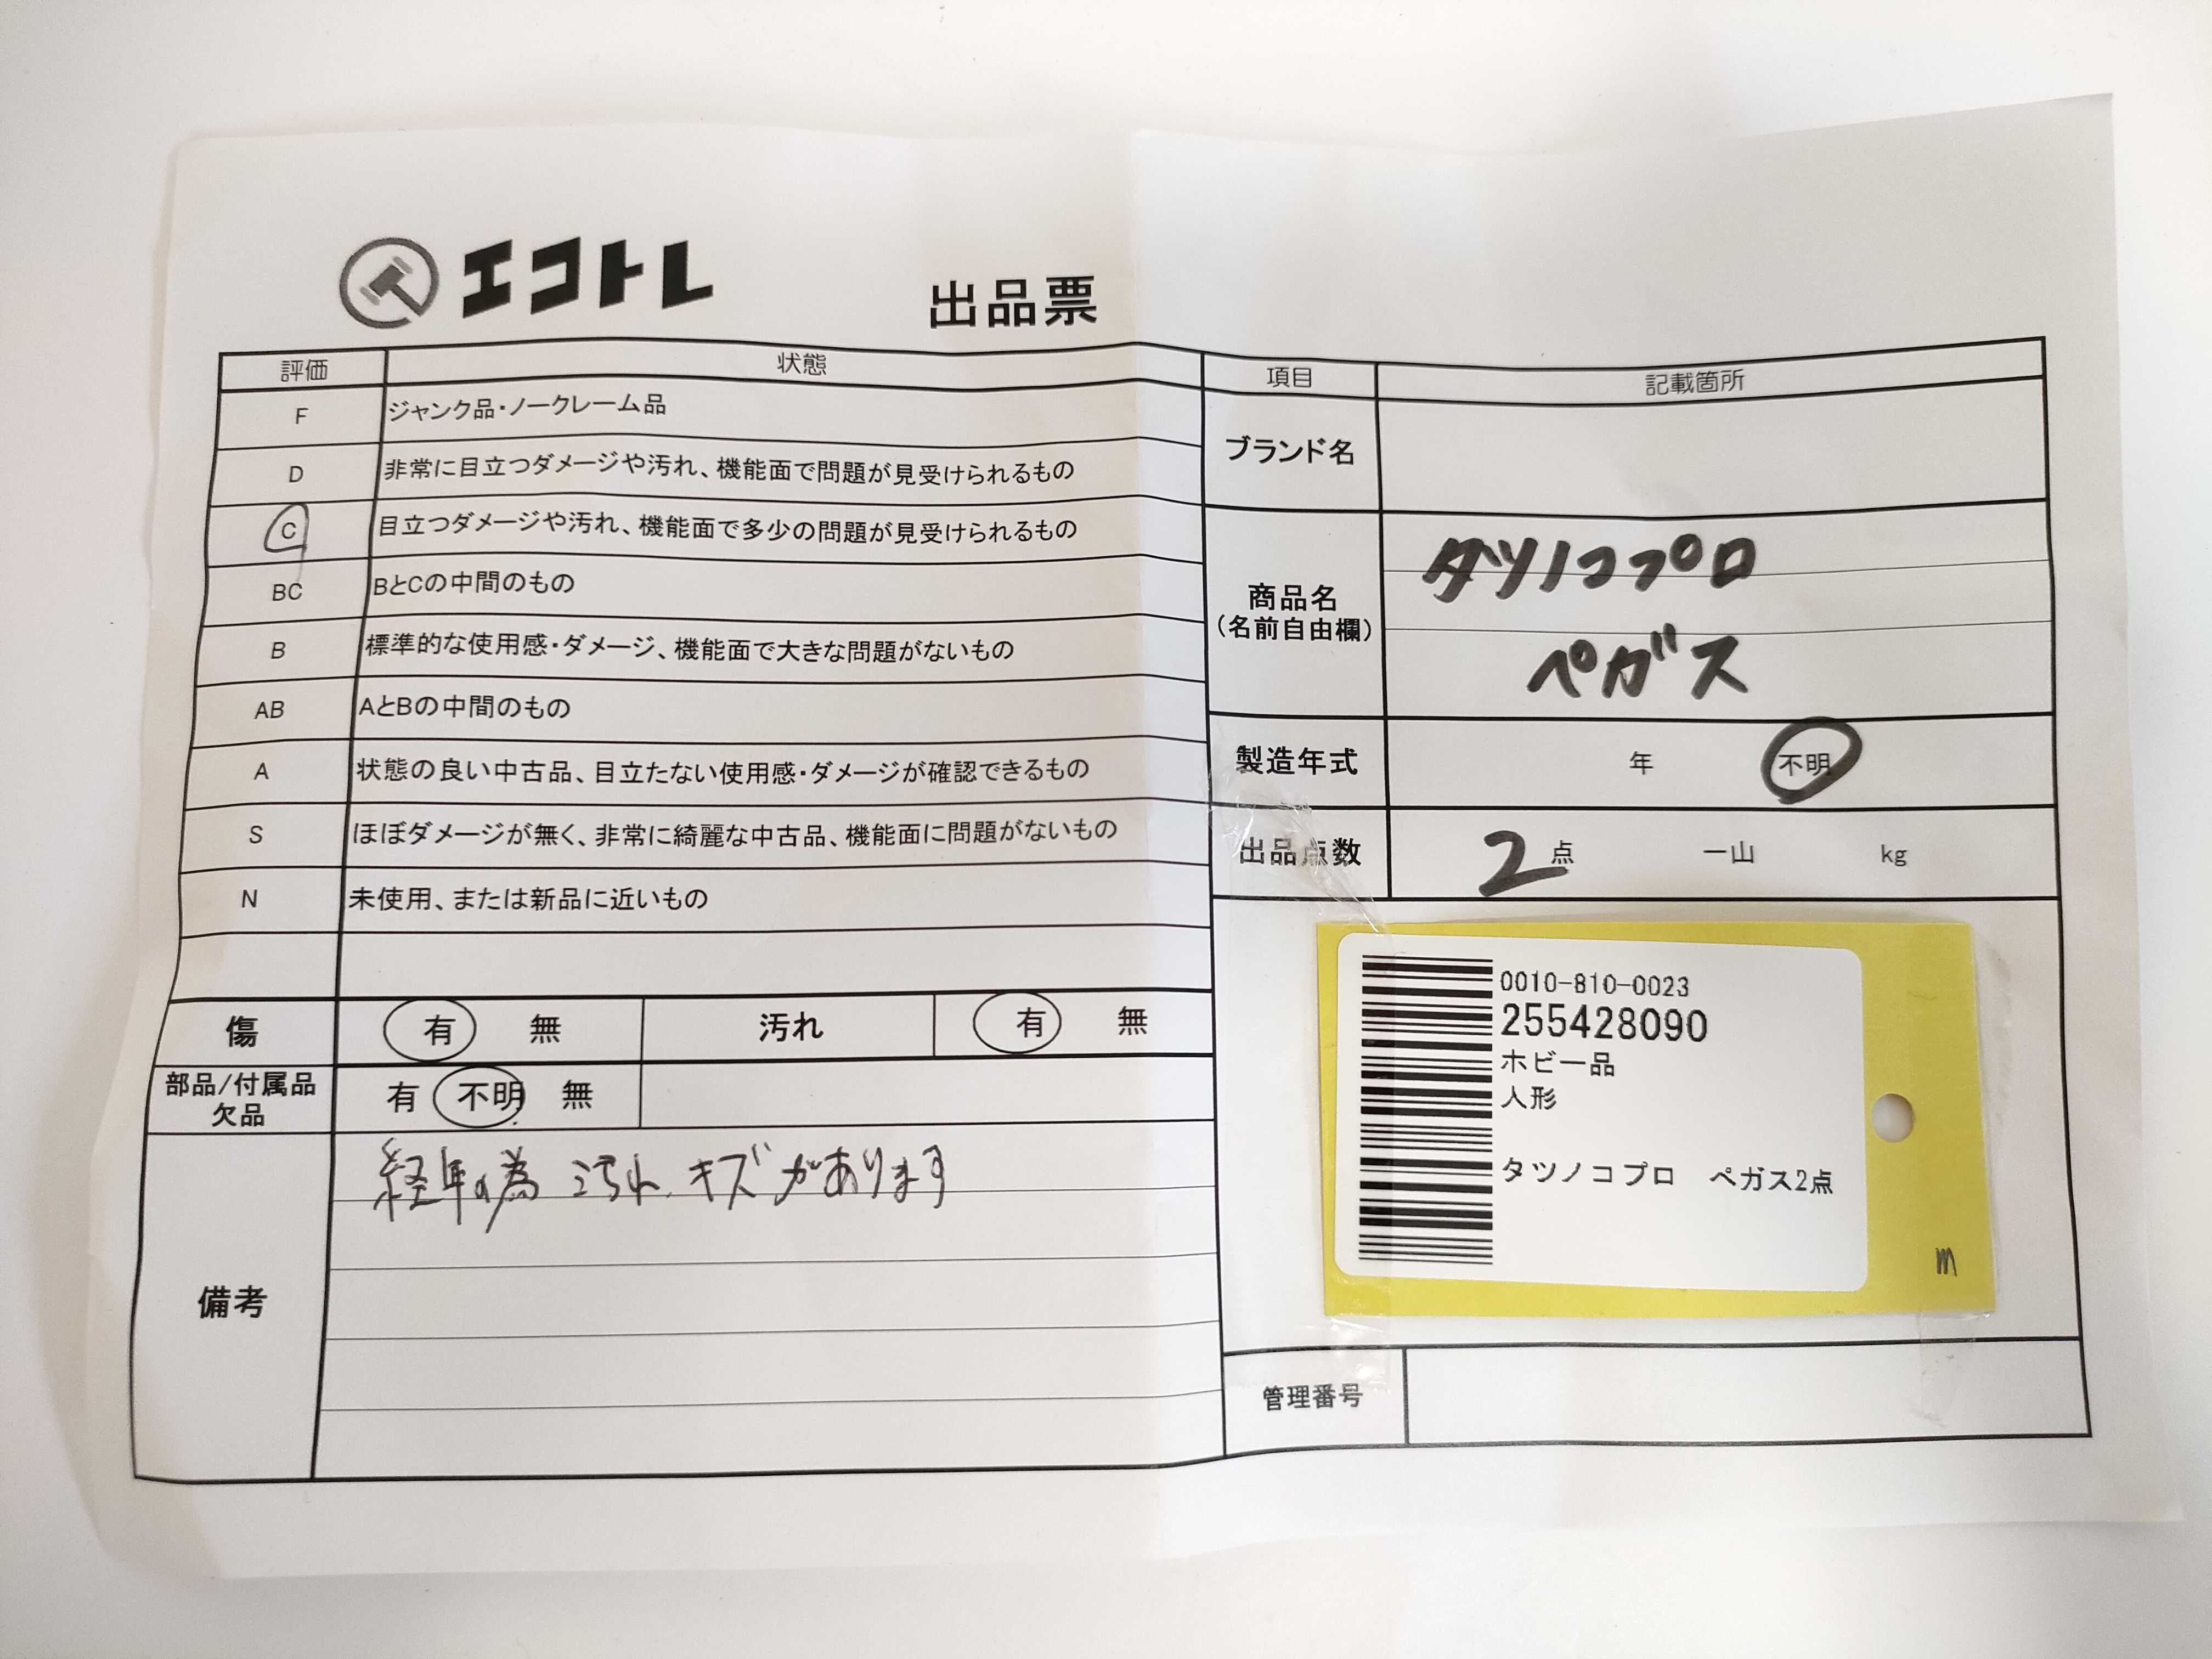 エコトレ
出品票
評価 状態
F ジャンク品・ノークレーム品
D 非常に目立つダメージや汚れ、機能面で問題が見受けられるもの
C 目立つダメージや汚れ、機能面で多少の問題が見受けられるもの
BC BとCの中間のもの
B 標準的な使用感・ダメージ、機能面で大きな問題がないもの
AB AとBの中間のもの
A 状態の良い中古品、目立たない使用感・ダメージが確認できるもの
S ほぼダメージが無く、非常に綺麗な中古品、機能面に問題がないもの
N 未使用、または新品に近いもの
傷 有 無 汚れ 有 無
部品/付属品
欠品
有 不明 無
備考
経年の為 汚れ、キズがあります
項目 記載箇所
ブランド名
商品名
(名前自由欄)
タツノコプロ
ペガス
製造年式 年 不明
出品点数 2点 一山 kg
0010-810-0023
255428090
ホビー品
人形
タツノコプロ ペガス2点
m
管理番号